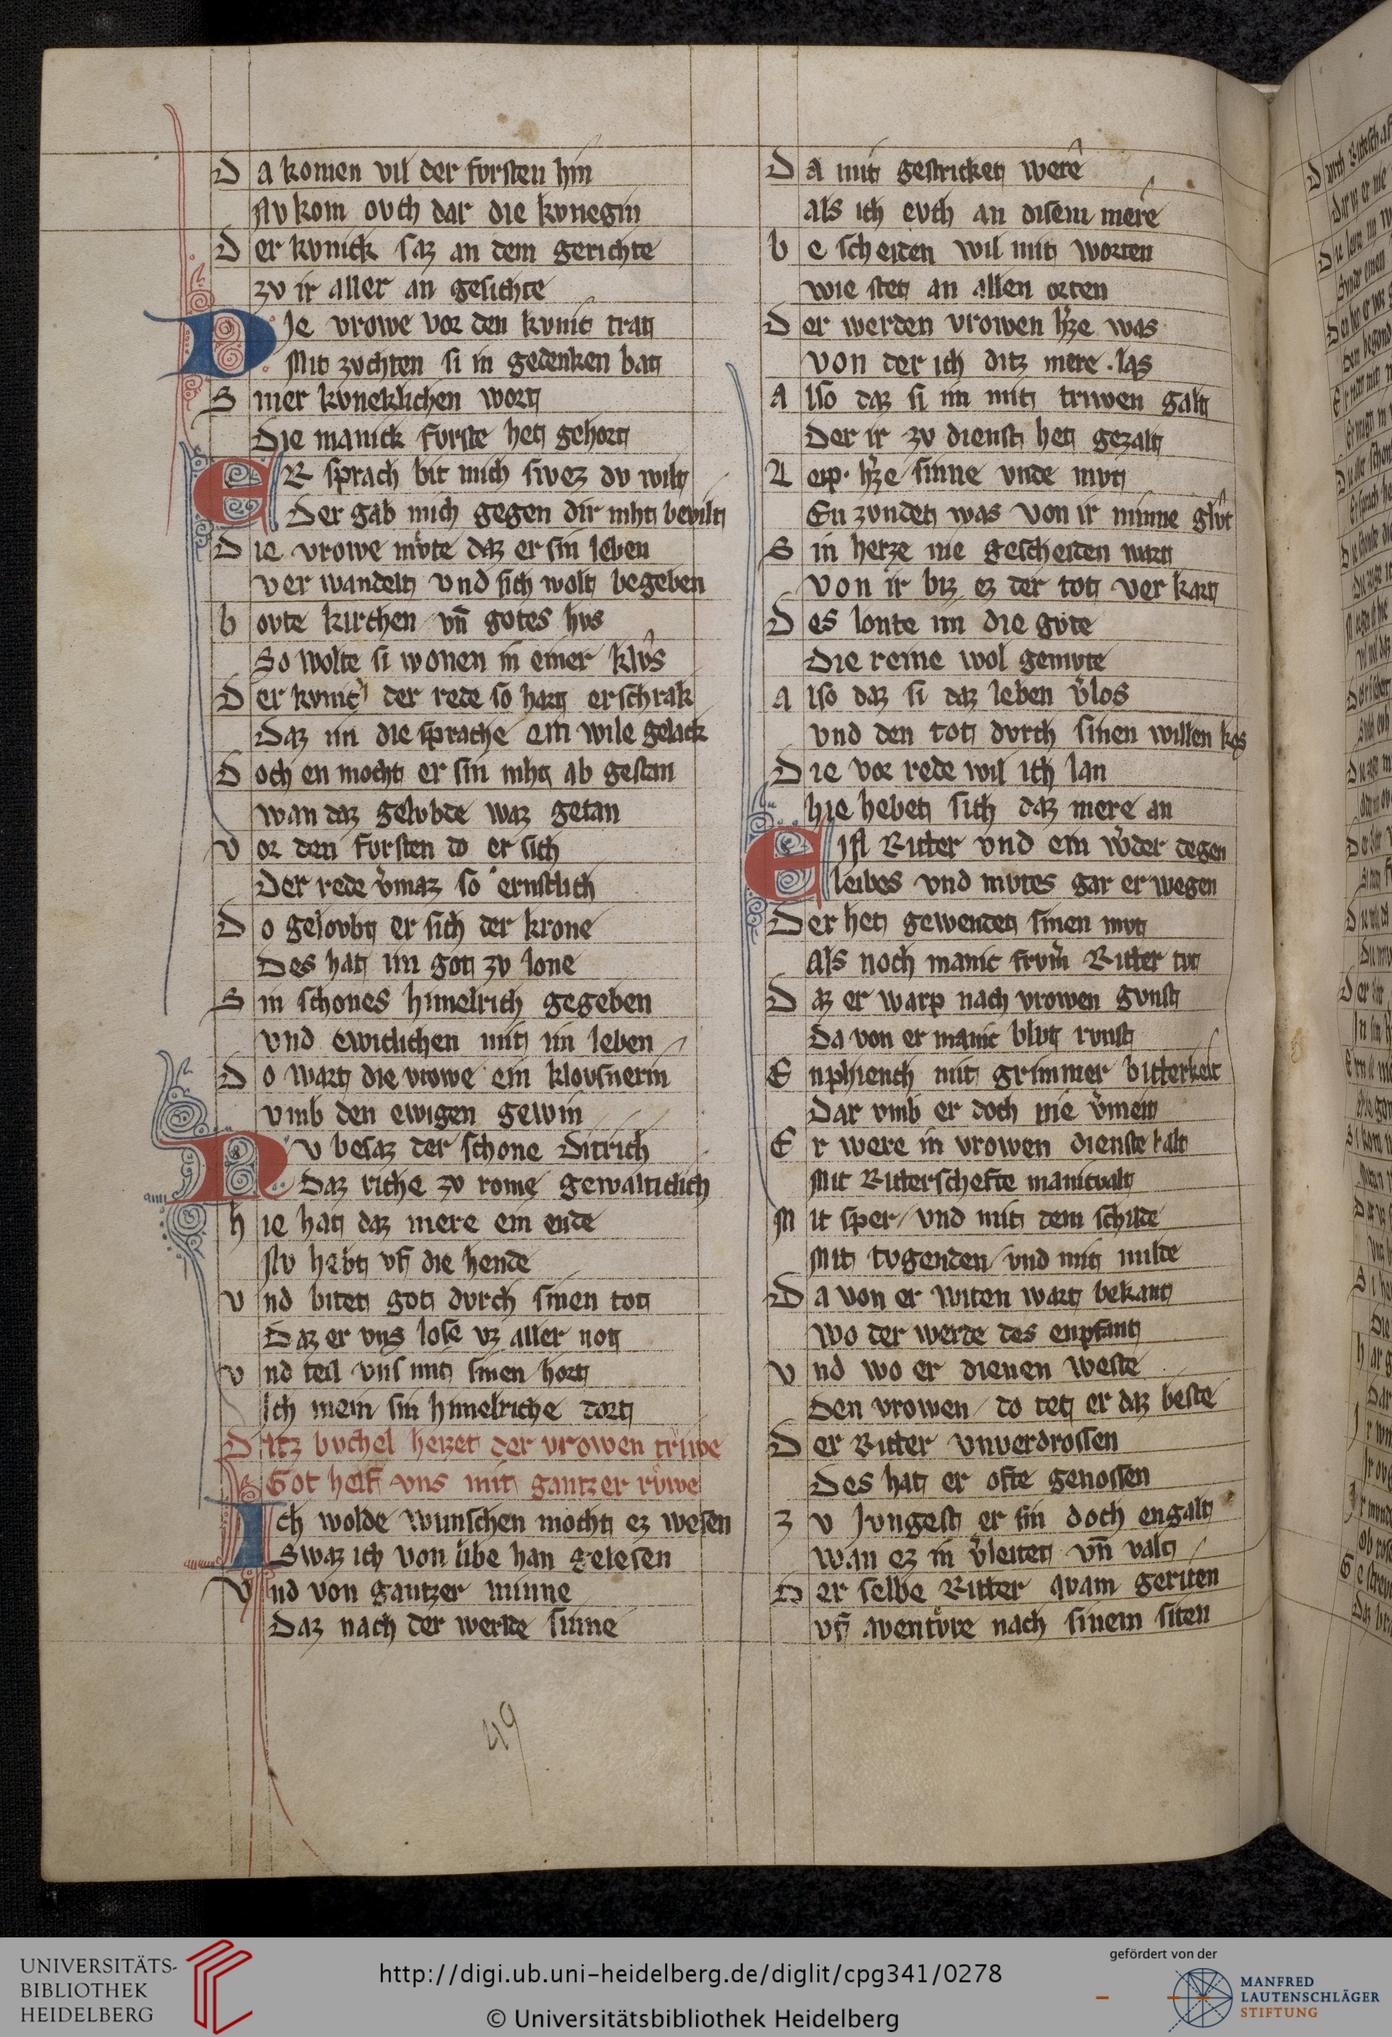 Da komen vil der fvrsten hin
Nv kom ovch dar die kvnegin
Der kvnick saz an dem gerichte
zv ir aller an gesichte
Die vrowe vor den kvnic trat
Mit zvchten si in gedenken bat
Siner kvneklichen wort
Die manick fvrste het gehort
ER sprach bit mich swez dv wilt
Der gab mich gegen dir niht bevilt
Die vrowe mvte daz er sin leben
ver wandelt vnd sich wolt begeben
bovte kirchen vn̄ gotes hvs
So wolte si wonen in einer klvs
Der kvnic der rede so hart erschrak
Daz im die sprache ein wile gelack
Doch en mocht er sin niht ab gestan
wan daz gelvbde waz getan
vor den fvrsten do er sich
Der rede v̓maz so ernstlich
Do gelovbt er sich der krone
Des hat im got zv lone
Sin schones himelrich gegeben
vnd ewiclichen mit im leben
Do wart die vrowe ein klovsnerin
vmb den ewigen gewin
Nv besaz der schone ditrich
Daz riche zv rome gewalticlich
hie hat daz mere ein ende
Nv hebt vf die hende
vnd bitet got dvrch sinen tot
Daz er vns lose vz aller not
vnd teil vns mit sinen hort
Ich mein sin himelriche dort
Ditz bvchel heizet der vrowen triwe
Got helf vns mit gantzer rvwe
Ich wolde wunschen mocht ez wesen
Swaz ich von libe han gelesen
Vnd von gantzer minne
Daz nach der werlde sinne
Da mit gestricket were
Als ich evch an disem mere
bescheiden wil mit worten
wie stet an allen orten
Der werden vrowen h̓ze was
von der ich ditz mere las
Also daz si im mit triwen galt
Der ir zv dienst het gezalt
Lip h̓ze sinne vnde mvt
En zvndet was von ir minne glvt
Sin herze nie gescheiden wart
von ir biz ez der tot ver kart
Des lonte im die gvte
Die reine wol gemvte
Also daz si daz leben v̓los
vnd den tot dvrch sinen willen kos
Die vor rede wil ich lan
hie hebet sich daz mere an
EIN Ritter vnd ein w̓der degen
leibes vnd mvtes gar erwegen
Der het gewendet sinen mvt
Als noch manic frvm̓ Ritter tvt
Daz er warp nach vrowen gvnst
Da von er manic blvt rvnst
Enphiench mit grimmer bitterkeit
Dar vmb er doch nie v̓meit
Er were in vrowen dienste balt
Mit Ritterschefte manicvalt
Mit sper vnd mit dem schilde
Mit tvgenden vnd mit milde
Da von er witen wart bekant
wo der werde des enpfant
vnd wo er dienen weste
Den vrowen do tet er daz beste
Der Ritter vnverdrossen
Des hat er ofte genossen
zv Jvngest er sin doch engalt
wan ez in v̓leitet vn̄ valt
Der selbe Ritter qvam geriten
vf aventvre nach sinem siten
49
UNIVERSITÄTS-
BIBLIOTHEK
HEIDELBERG
http://digi.ub.uni-heidelberg.de/diglit/cpg341/0278
© Universitätsbibliothek Heidelberg
gefördert von der
MANFRED
LAUTENSCHLÄGER
STIFTUNG